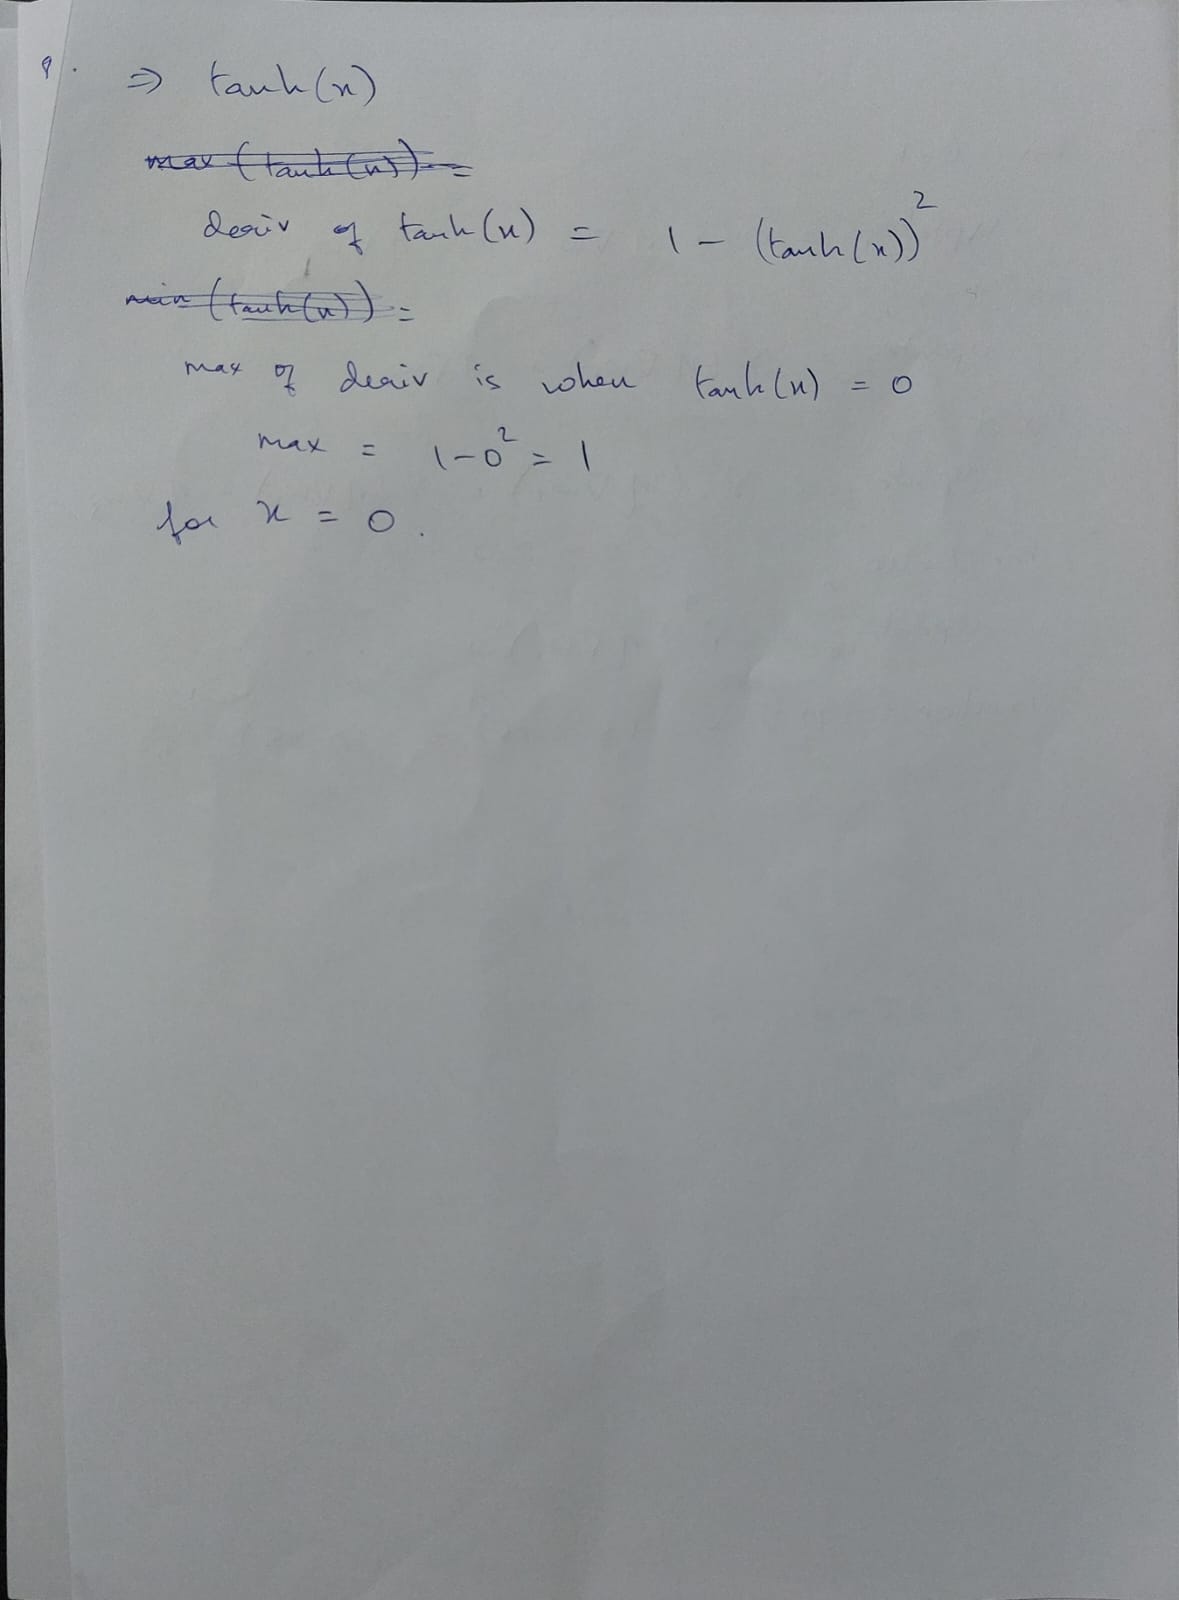 9. ⇒ tanh(x)
max (tanh(x)) =
deriv of tanh(x) = 1 - (tanh(x))²
min (tanh(x)) =
max of deriv is when tanh(x) = 0
max = 1-0² = 1
for x = 0.